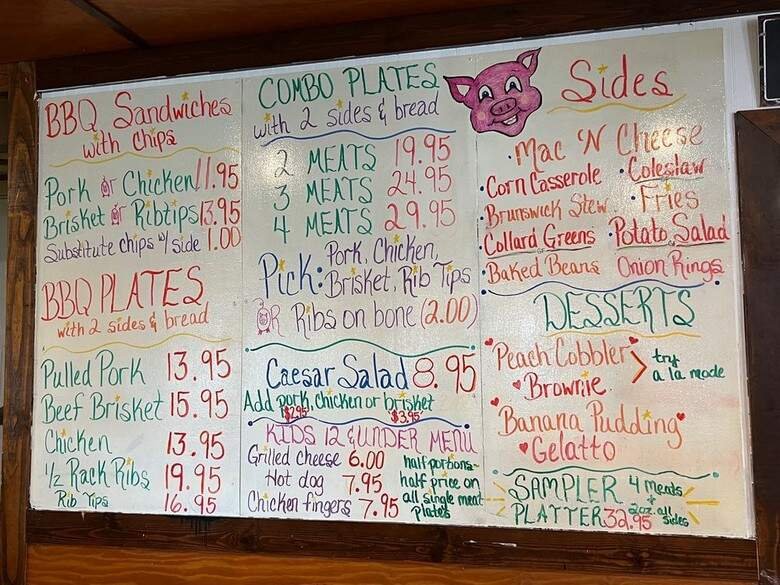 BBQ Sandwiches
with chips
Pork or Chicken 11.95
Brisket or Ribtips 13.95
Substitute chips w/ side 1.00
BBQ PLATES
with 2 sides & bread
Pulled Pork 13.95
Beef Brisket 15.95
Chicken 13.95
1/2 Rack Ribs 19.95
Rib Tips 16.95
COMBO PLATES
with 2 sides & bread
2 MEATS 19.95
3 MEATS 24.95
4 MEATS 29.95
Pick: Pork, Chicken,
Brisket, Rib Tips
OR Ribs on bone (2.00)
Caesar Salad 8.95
Add pork, chicken or brisket
$2.95 $3.95
KIDS 12 & UNDER MENU
Grilled cheese 6.00
Hot dog 7.95
Chicken fingers 7.95
half portions-
half price on
all single meat
plates
Sides
• Mac 'N Cheese
• Corn Casserole • Coleslaw
• Brunswick Stew • Fries
• Collard Greens • Potato Salad
• Baked Beans Onion Rings
DESSERTS
Peach Cobbler
Brownie
try
a la mode
Banana Pudding
Gelatto
SAMPLER 4 meats
+
PLATTER 32.95 2oz. all
sides